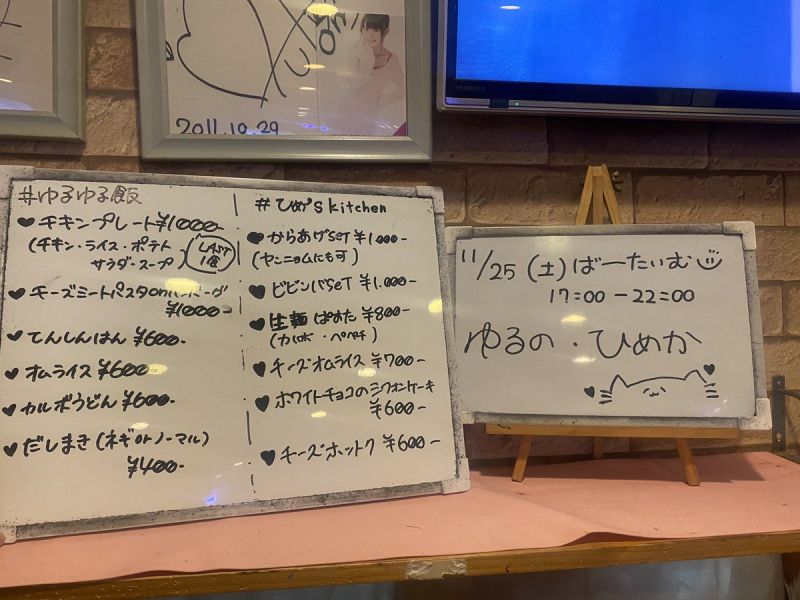 2011.10.29
#ゆるゆる飯
♥チキンプレート¥1000-
(チキン・ライス・ポテト
サラダ・スープ
LAST
1食
♥チーズミートパスタonハンバーグ
¥1000-
♥てんしんはん ¥600-
♥オムライス ¥600-
♥カルボうどん ¥600-
♥だしまき(ネギorノーマル)
¥400-
#ひめ's kitchen
♥からあげseT ¥1.000-
(ヤンニョムにも可)
♥ビビンバseT ¥1.000-
♥生麺 ぱすた ¥800-
(カルボ・ペペチ)
♥チーズオムライス ¥700-
♥ホワイトチョコのシフォンケーキ
¥600-
♥チーズホットク ¥600-
11/25(土)ばーたいむ
17:00-22:00
ゆるの・ひめか